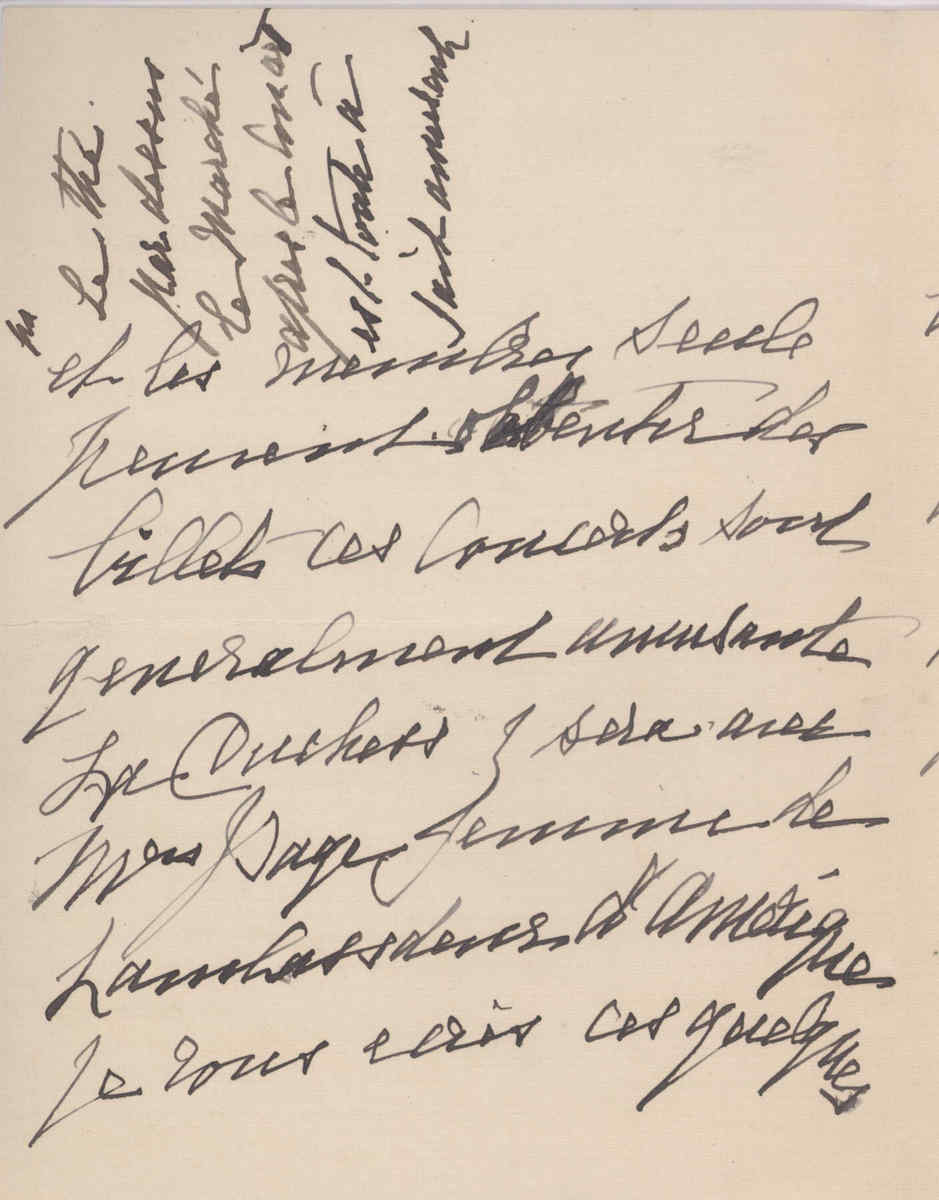 Le thé.
par dessus
le Marché
apres le Concert
est tout à
fait amusant
et les membres seule
peuvent obtenir des
billets ces Concerts sont
generalment amusante
La Duchess y sera avec
Mrs Page femme de
L'ambassdeur d'Amérique
Je vous ecris ces quelques